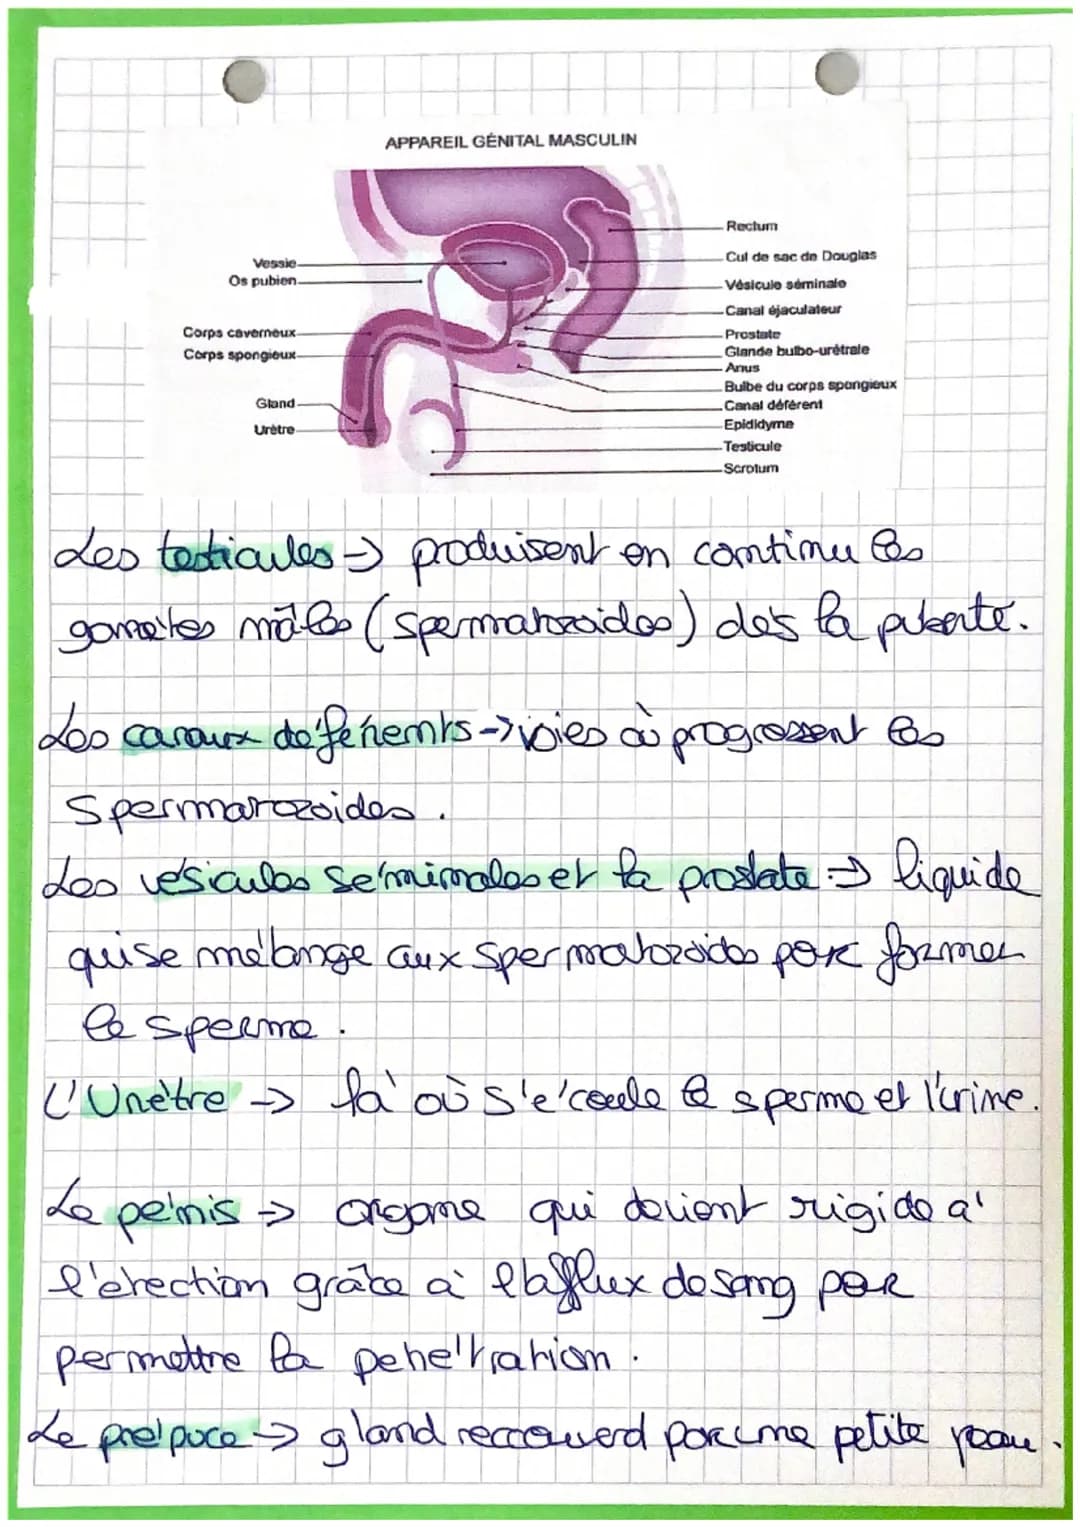 APPAREIL GÉNITAL MASCULIN
Vessie
Os pubien
Corps caverneux
Corps spongieux
Gland
Urètre
Rectum
Cul de sac de Douglas
Vésicule séminale
Canal éjaculateur
Prostate
Glande bulbo-urétrale
Anus
Bulbe du corps spongieux
Canal déférent
Epididyme
Testicule
Scrotum
Les testicules → produisent en continu les
gamètes mâles (spermatozoides) dès la puberté.
Les canaux déférents → voies où progressent les
spermatozoides.
Les vésicules séminales et la prostate → liquide
qui se mélange aux spermatozoides pour former
le sperme.
L'Urètre → là où s'écoule le sperme et l'urine.
Le pénis → organe qui devient rigide à
l'érection grâce à l'afflux de sang pour
permettre la pénétration.
Le prépuce → gland recouverd par une petite peau.